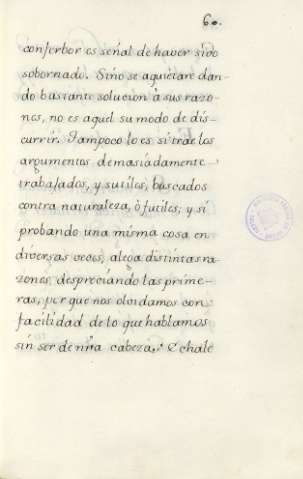 60.
conferbor es señal de haver sido
sobornado. Sino se aquietare dan-
do bastante solucion à sus razo-
nes, no es aquel su modo de dis-
currir. Tampoco lo es si trae los
argumentos demasiadamente
trabajados, y sutiles, buscados
contra naturaleza, ò futiles; y si
probando una misma cosa en
diversas veces, alega distintas ra-
zones, despreciando las prime-
ras, por que nos olvidamos con
facilidad de lo que hablamos
sin ser de nr̃a cabeza. Echale